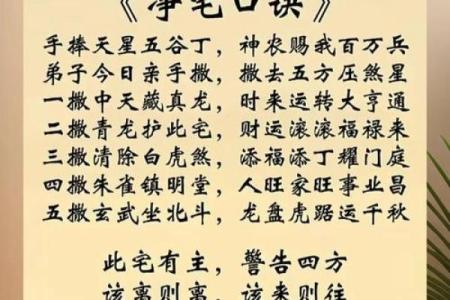 《净宅口诀》
手捧天星五谷丁，神农赐我百万兵
弟子今日亲手撒，撒去五方压煞星
一撒中天藏真龙，时来运转大亨通
二撒青龙护此宅，财运滚滚福禄来
三撒清除白虎煞，添福添丁耀门庭
四撒朱雀镇明堂，人旺家旺事业昌
五撒玄武坐北斗，龙盘虎踞运千秋
此宅有主，警告四方
该离则离，该来则往